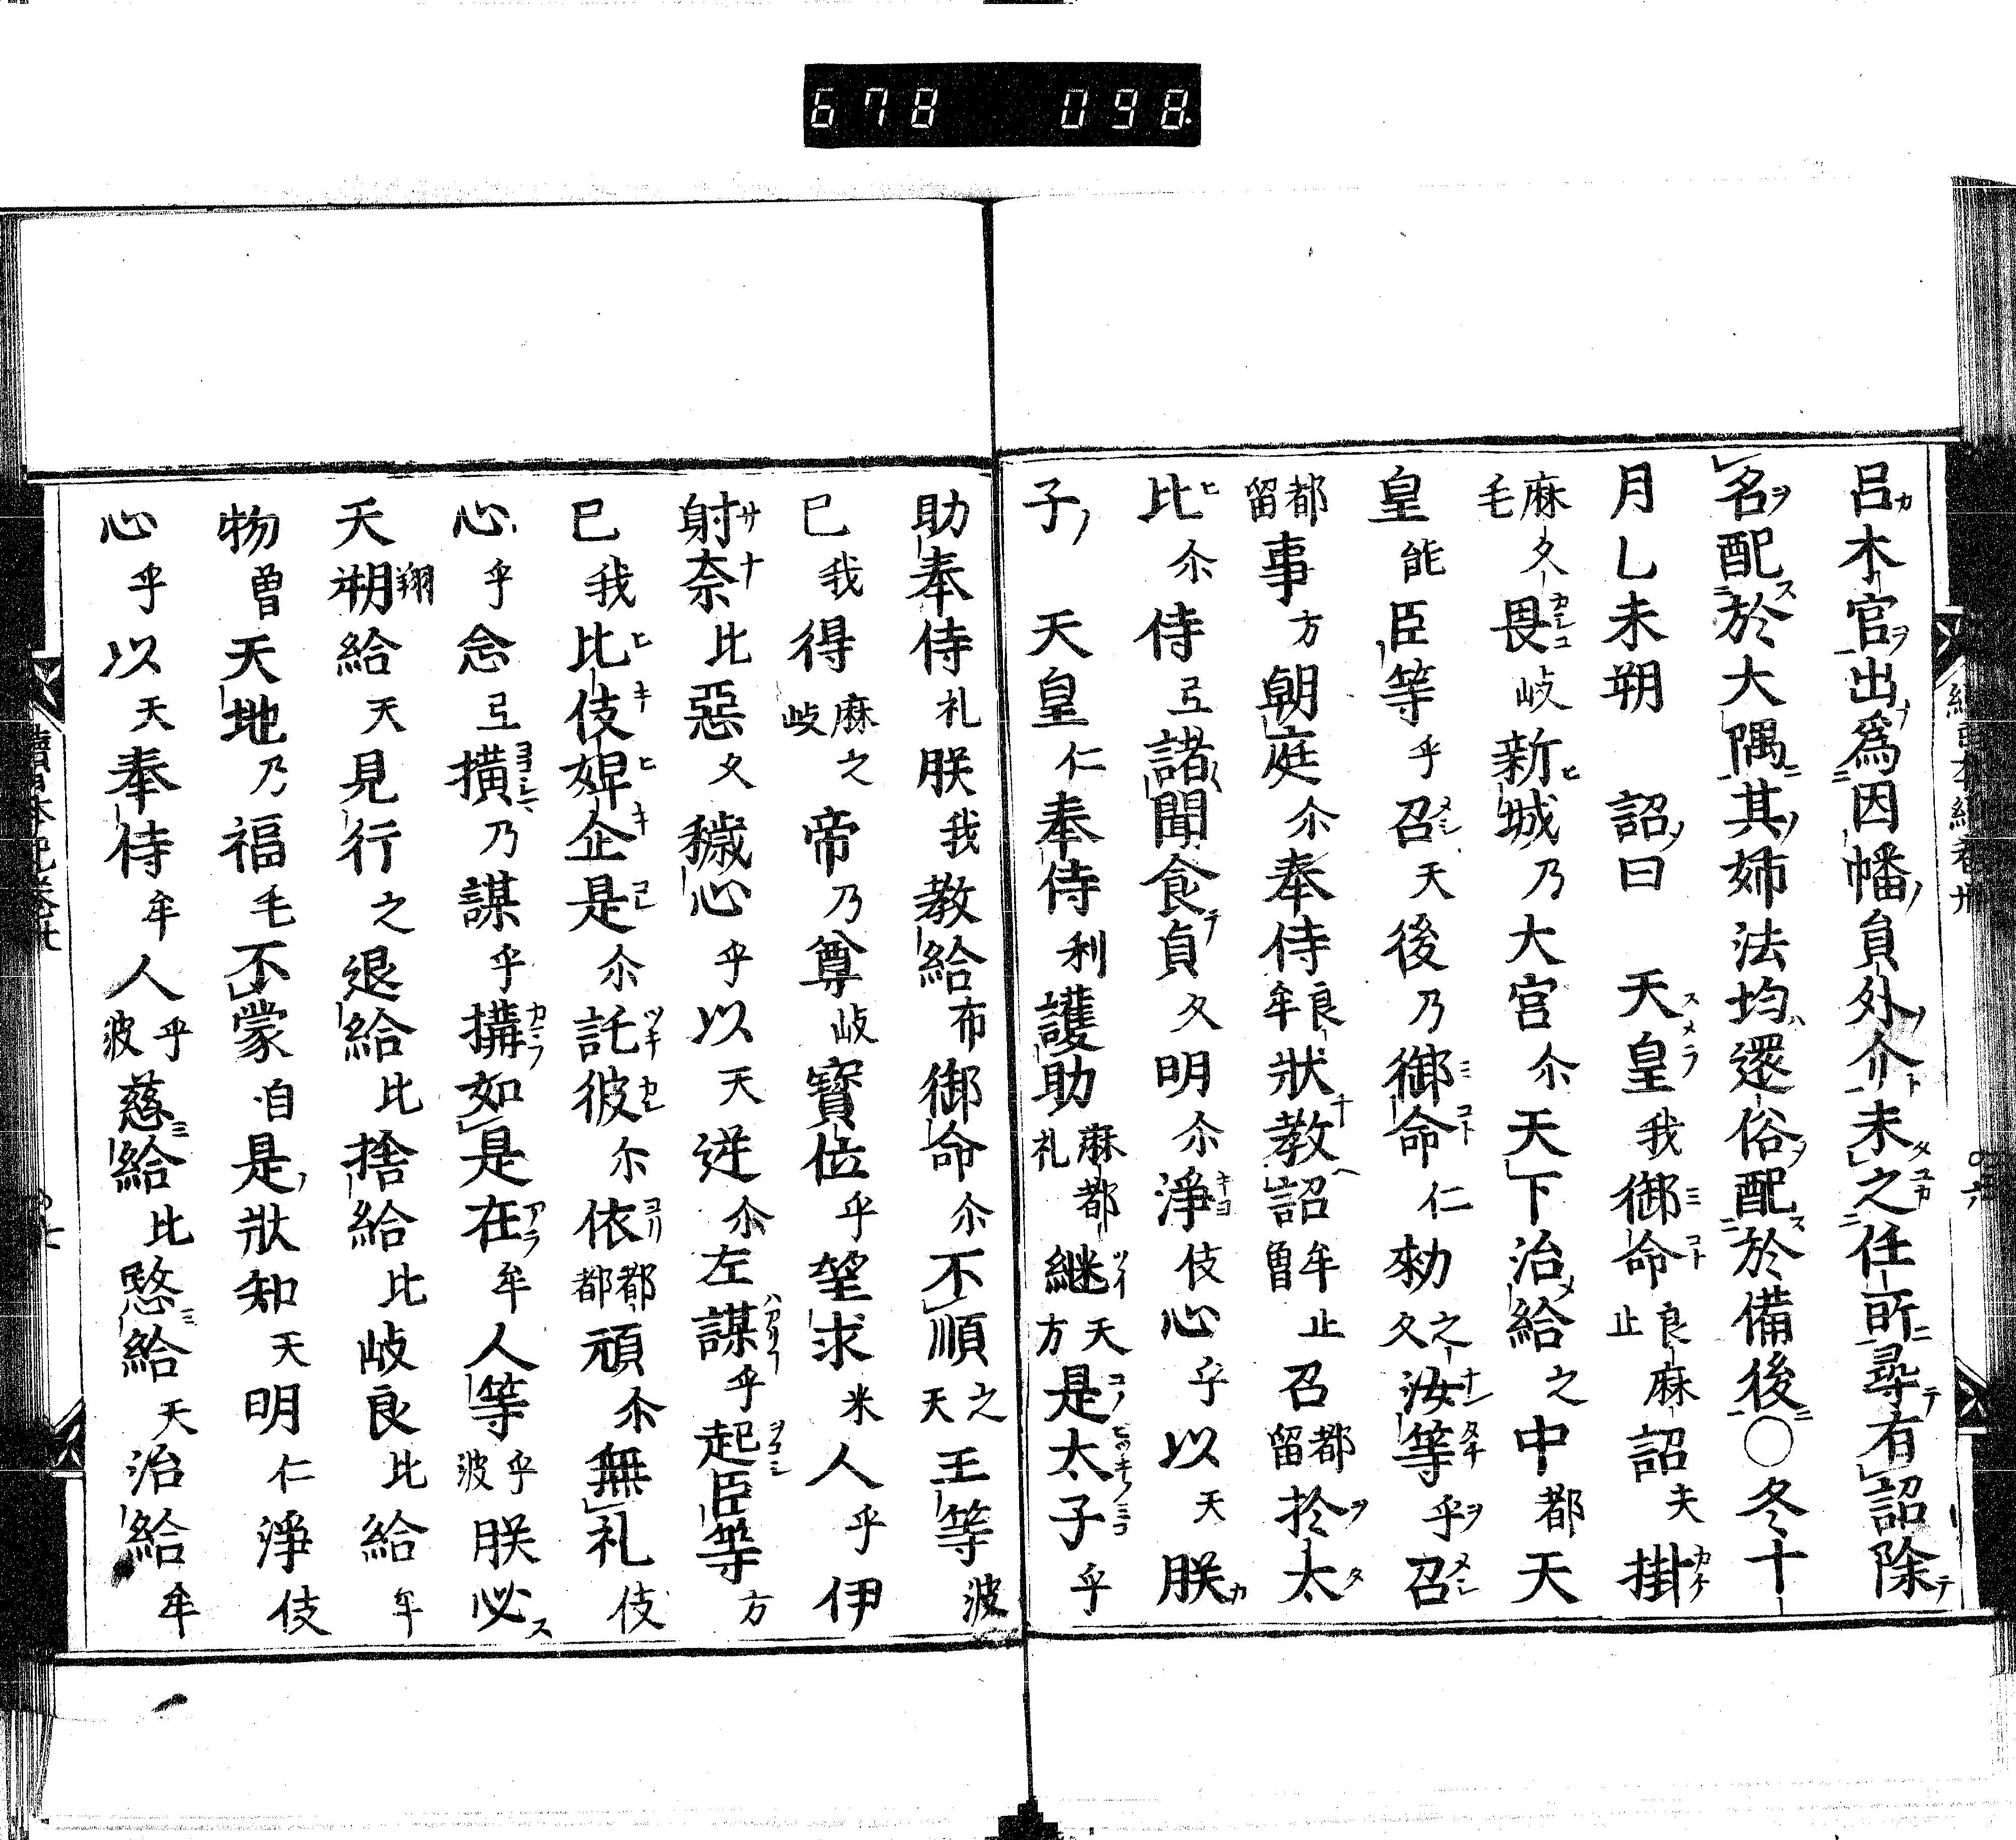 678 098
呂本官出爲因幡員外介未之任所尋有詔除
名配於大隅其姉法均還俗配於備後○冬十
月乚未朔 詔曰 天皇我御命良麻止詔夫掛
麻久毛畏岐新城乃大宮尒天下治給之中都天
皇能臣等乎召天後乃御命仁勑之久汝等乎召
都留事方朝庭尒奉侍良牟狀教詔牟曽止召都留於太
比尒侍弖諸聞食貞久明尒淨伎心乎以天朕
子 天皇仁奉侍利護助麻都礼継天方是太子乎
助奉侍礼朕我教給布御命尒不順之天王等波
已我得麻之岐帝乃尊岐寶位乎望求米人乎伊
射奈比惡久穢心乎以天逆尒左謀乎起臣等方
已我比伎婢企是尒託彼尓依都都頑尒無礼伎
心乎念弖撗乃謀乎搆如是在牟人等乎波朕必
天翔給天見行之退給比捨給比岐良比給牟
物曽天地乃福毛不蒙自是狀知天明仁淨伎
心乎以天奉侍牟人乎波慈給比愍給天治給牟